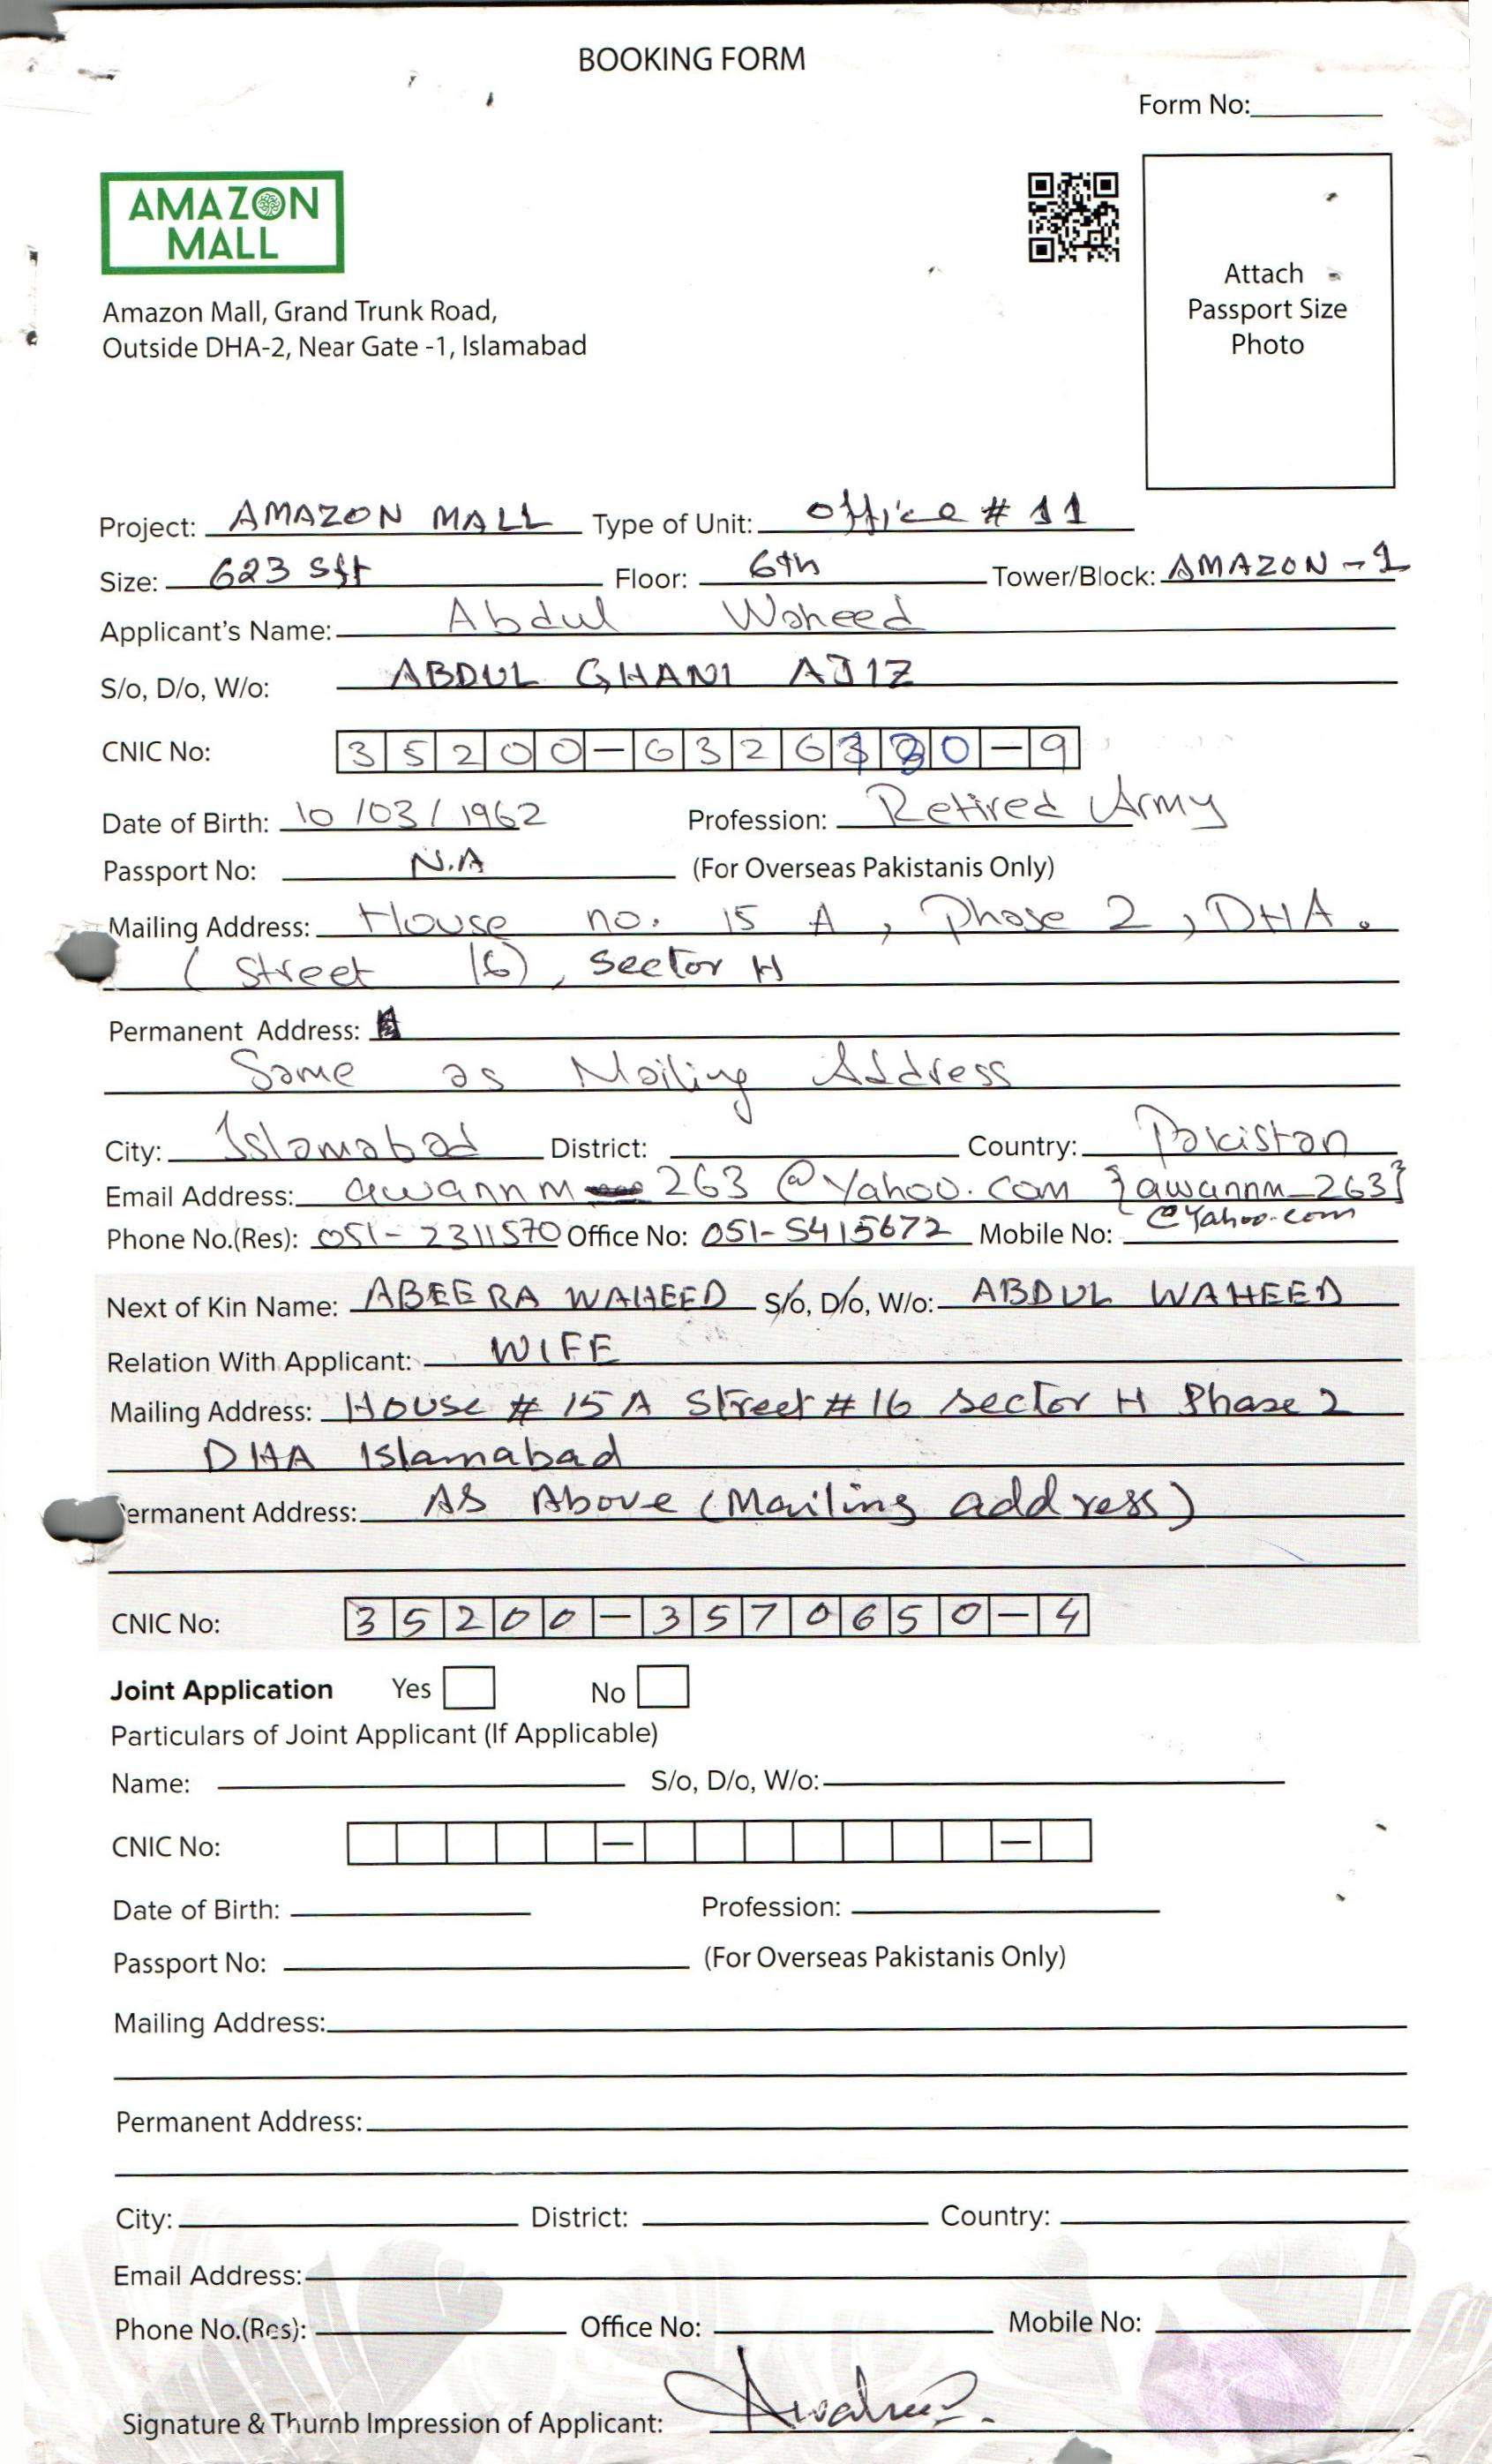 BOOKING FORM
Form No:
AMAZON
MALL
Amazon Mall, Grand Trunk Road,
Outside DHA-2, Near Gate -1, Islamabad
Attach
Passport Size
Photo
Project: AMAZON MALL Type of Unit: Office # 11
Size: 623 sft Floor: 6th Tower/Block: AMAZON - 1
Applicant's Name: Abdul Waheed
S/o, D/o, W/o: ABDUL GHANI AJIZ
CNIC No: 35200-6326 0-9
Date of Birth: 10/03/1962 Profession: Retired Army
Passport No: N.A (For Overseas Pakistanis Only)
Mailing Address: House no. 15 A, Phase 2, DHA.
(Street 16), Sector H
Permanent Address:
Same as Mailing Address
City: Islamabad District: Country: Pakistan
Email Address: awannm 263 @Yahoo.com {awannm_263}
@Yahoo.com
Phone No.(Res): 051-2311570 Office No: 051-5415672 Mobile No:
Next of Kin Name: ABEERA WAHEED S/o, D/o, W/o: ABDUL WAHEED
Relation With Applicant: WIFE
Mailing Address: House # 15 A Street # 16 Sector H Phase 2
DHA Islamabad
ermanent Address: AS Above (Mailing address)
CNIC No: 35200-3570650-4
Joint Application Yes No
Particulars of Joint Applicant (If Applicable)
Name: S/o, D/o, W/o:
CNIC No: - -
Date of Birth: Profession:
Passport No: (For Overseas Pakistanis Only)
Mailing Address:
Permanent Address:
City: District: Country:
Email Address:
Phone No.(Res): Office No: Mobile No:
Signature & Thumb Impression of Applicant: